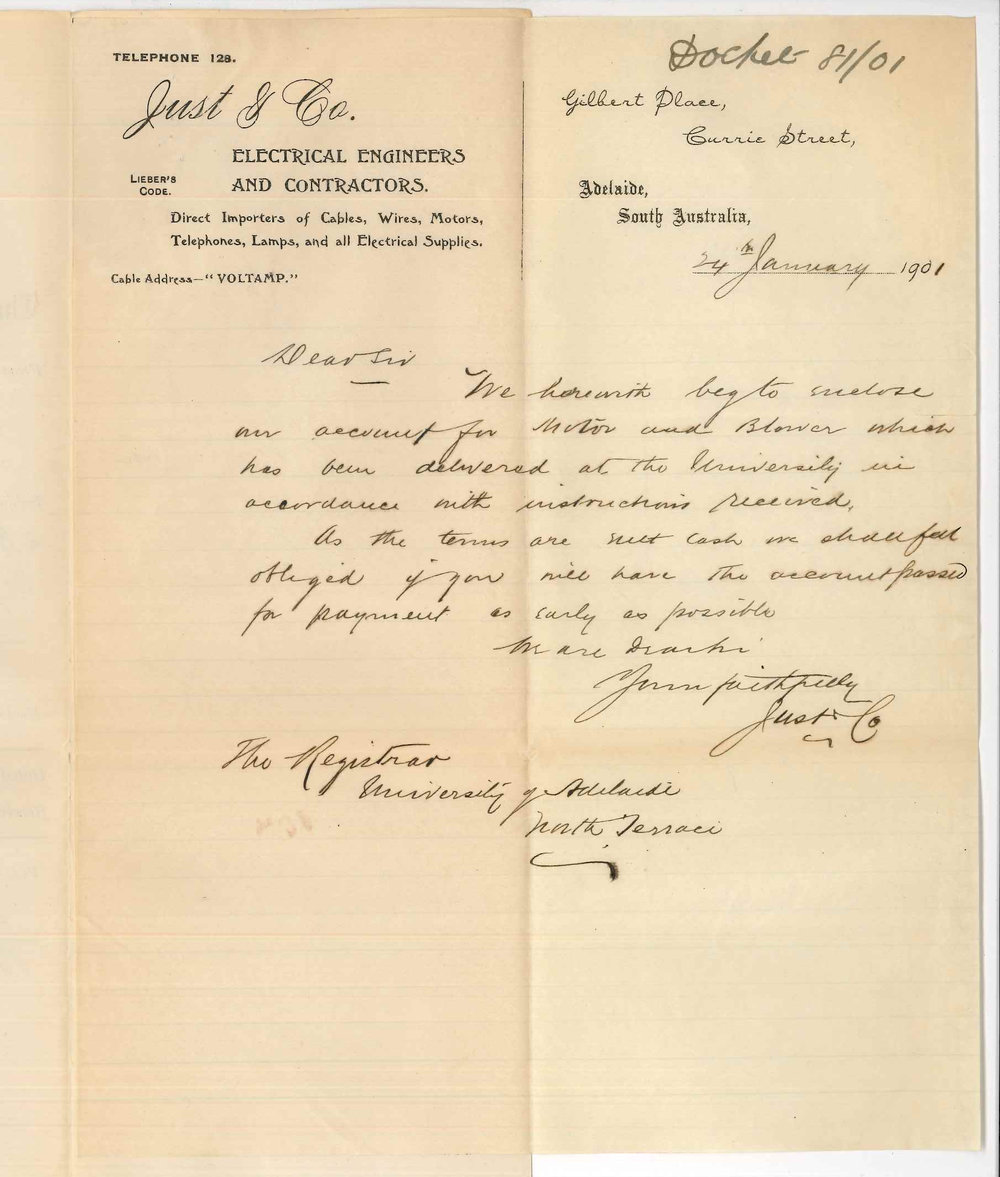 Docket 81/01
TELEPHONE 128.
Just & Co.
ELECTRICAL ENGINEERS
AND CONTRACTORS.
LIEBER'S
CODE.
Direct Importers of Cables, Wires, Motors,
Telephones, Lamps, and all Electrical Supplies.
Cable Address—"VOLTAMP."
Gilbert Place,
Currie Street,
Adelaide,
South Australia,
24th January 1901
Dear Sir
We herewith beg to enclose
our account for Motor and Blower which
has been delivered at the University in
accordance with instructions received.
As the terms are nett cash we shall feel
obliged if you will have the account passed
for payment as early as possible
We are Dear Sir
Yours faithfully
Just & Co
The Registrar
University of Adelaide
North Terrace